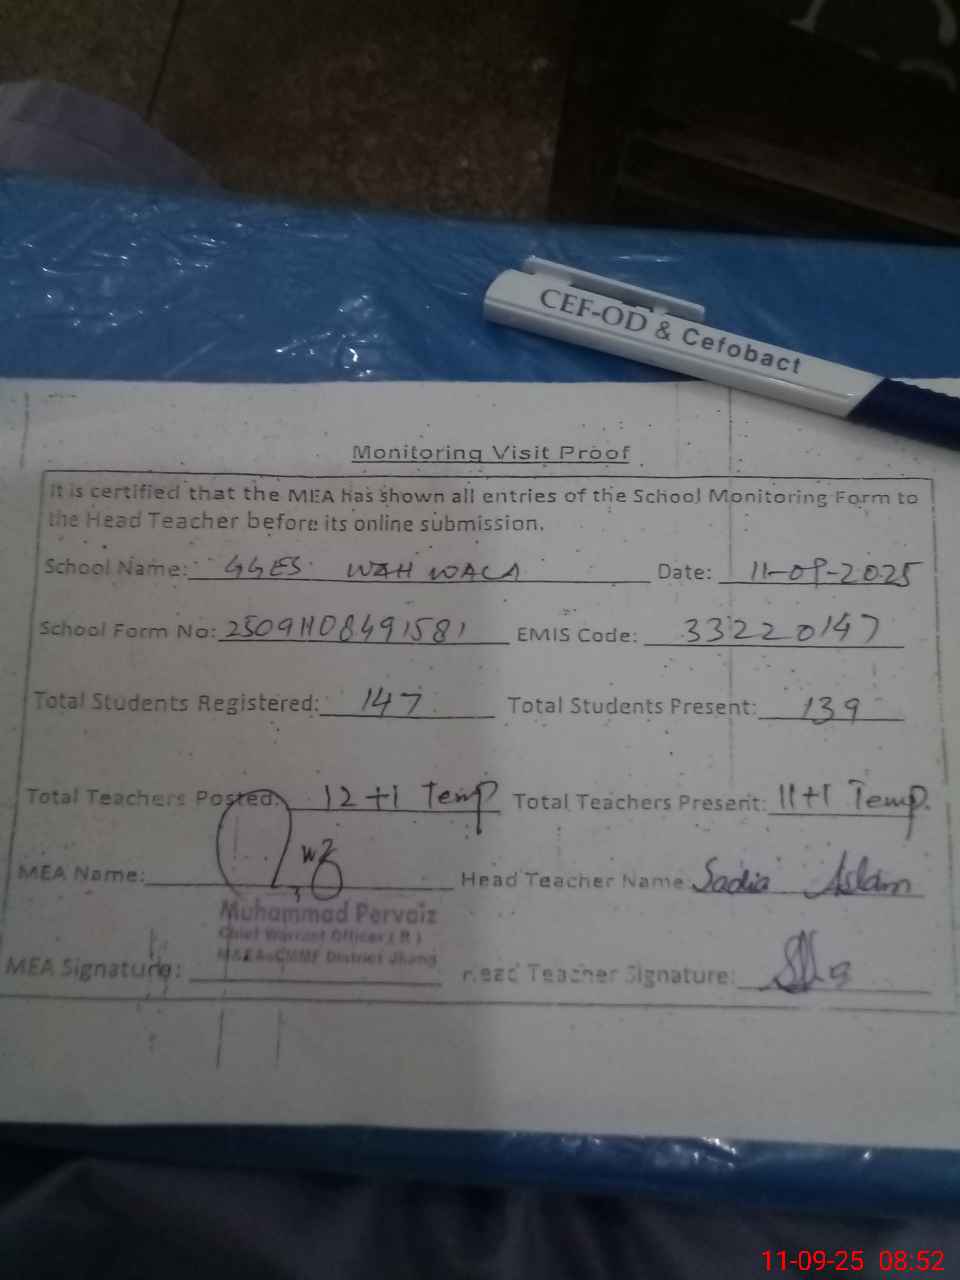 CEF-OD & Cefobact
Monitoring Visit Proof
It is certified that the MEA has shown all entries of the School Monitoring Form to
the Head Teacher before its online submission.
School Name: GGES WAH WALA Date: 11-09-2025
School Form No: 25091108491581 EMIS Code: 33220147
Total Students Registered: 147 Total Students Present: 139
Total Teachers Posted: 12+1 Temp Total Teachers Present: 11+1 Temp.
MEA Name: Head Teacher Name: Sadia Aslam
Muhammad Pervaiz
Chief Warrant Officer ( R )
M&EA-CMMF District Jhang
MEA Signature: Head Teacher Signature:
11-09-25 08:52